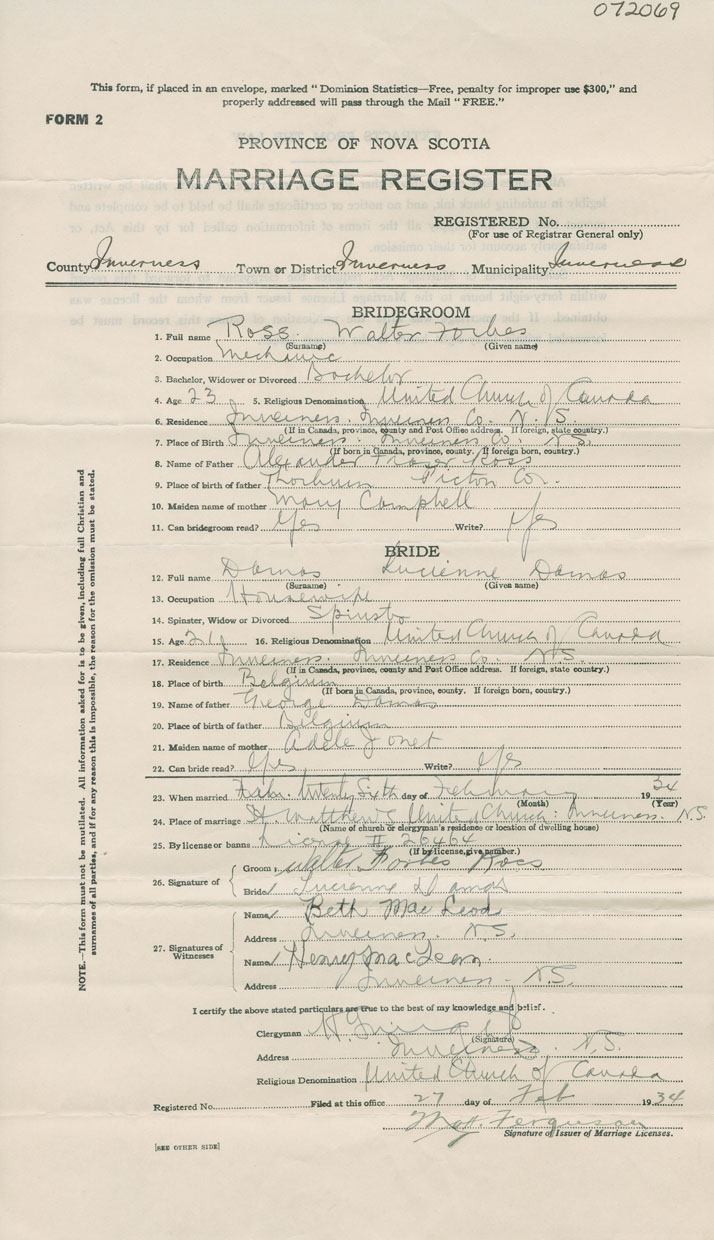 072069
This form, if placed in an envelope, marked "Dominion Statistics—Free, penalty for improper use $300," and
properly addressed will pass through the Mail "FREE."
FORM 2
PROVINCE OF NOVA SCOTIA
MARRIAGE REGISTER
REGISTERED No.
(For use of Registrar General only)
County Inverness Town or District Inverness Municipality Inverness
BRIDEGROOM
1. Full name Ross Walter Forbes
(Surname) (Given name)
2. Occupation Mechanic
3. Bachelor, Widower or Divorced Bachelor
4. Age 23 5. Religious Denomination United Church of Canada
6. Residence Inverness. Inverness Co. N.S.
(If in Canada, province, county and Post Office address. If foreign, state country.)
7. Place of Birth Inverness. Inverness Co. N.S.
(If born in Canada, province, county. If foreign born, country.)
8. Name of Father Alexander Fraser Ross
9. Place of birth of father Thorburn Pictou Co.
10. Maiden name of mother Mary Campbell
11. Can bridegroom read? Yes Write? Yes
BRIDE
12. Full name Damas Lucienne Damas
(Surname) (Given name)
13. Occupation Housewife
14. Spinster, Widow or Divorced Spinster
15. Age 21 16. Religious Denomination United Church of Canada
17. Residence Inverness. Inverness Co. N.S.
(If in Canada, province, county and Post Office address. If foreign, state country.)
18. Place of birth Belgium
(If born in Canada, province, county. If foreign born, country.)
19. Name of father George Damas
20. Place of birth of father Belgium
21. Maiden name of mother Adele Jonet
22. Can bride read? Yes Write? Yes
23. When married twenty Sixth day of February 1934
(Month) (Year)
24. Place of marriage St. Matthew's United Church: Inverness. N.S.
(Name of church or clergyman's residence or location of dwelling house)
25. By license or banns License # 26464
(If by license, give number.)
26. Signature of
Groom Walter Forbes Ross
Bride Lucienne Damas
27. Signatures of Witnesses
Name Beth MacLeod
Address Inverness. N.S.
Name Henry MacLean.
Address Inverness - N.S.
I certify the above stated particulars are true to the best of my knowledge and belief.
Clergyman
(Signature)
Address Inverness. N.S.
Religious Denomination United Church of Canada
Registered No. Filed at this office 27 day of Feb 1934
Ferguson
Signature of Issuer of Marriage Licenses.
[SEE OTHER SIDE]
NOTE.—This form must not be mutilated. All information asked for is to be given, including full Christian and
surnames of all parties, and if for any reason this is impossible, the reason for the omission must be stated.